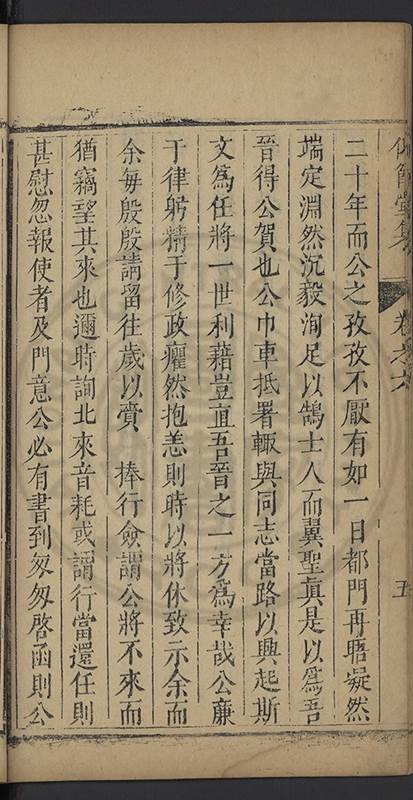 堂集
卷之六
五
二十年而公之孜孜不厭有如一日都門再晤凝然
端定淵然沉毅洵足以鵠士人而翼聖真是以爲吾
晉得公賀也公巾車抵署輙與同志當路以興起斯
文爲任將一世利藉豈直吾晉之一方爲幸哉公廉
于律躬精于修政癯然抱恙則時以將休致示余而
余每殷殷請留往歲以賫 捧行僉謂公將不來而
猶竊望其來也邇時詢北來音耗或謂行當還任則
甚慰忽報使者及門意公必有書到匆匆啓函則公